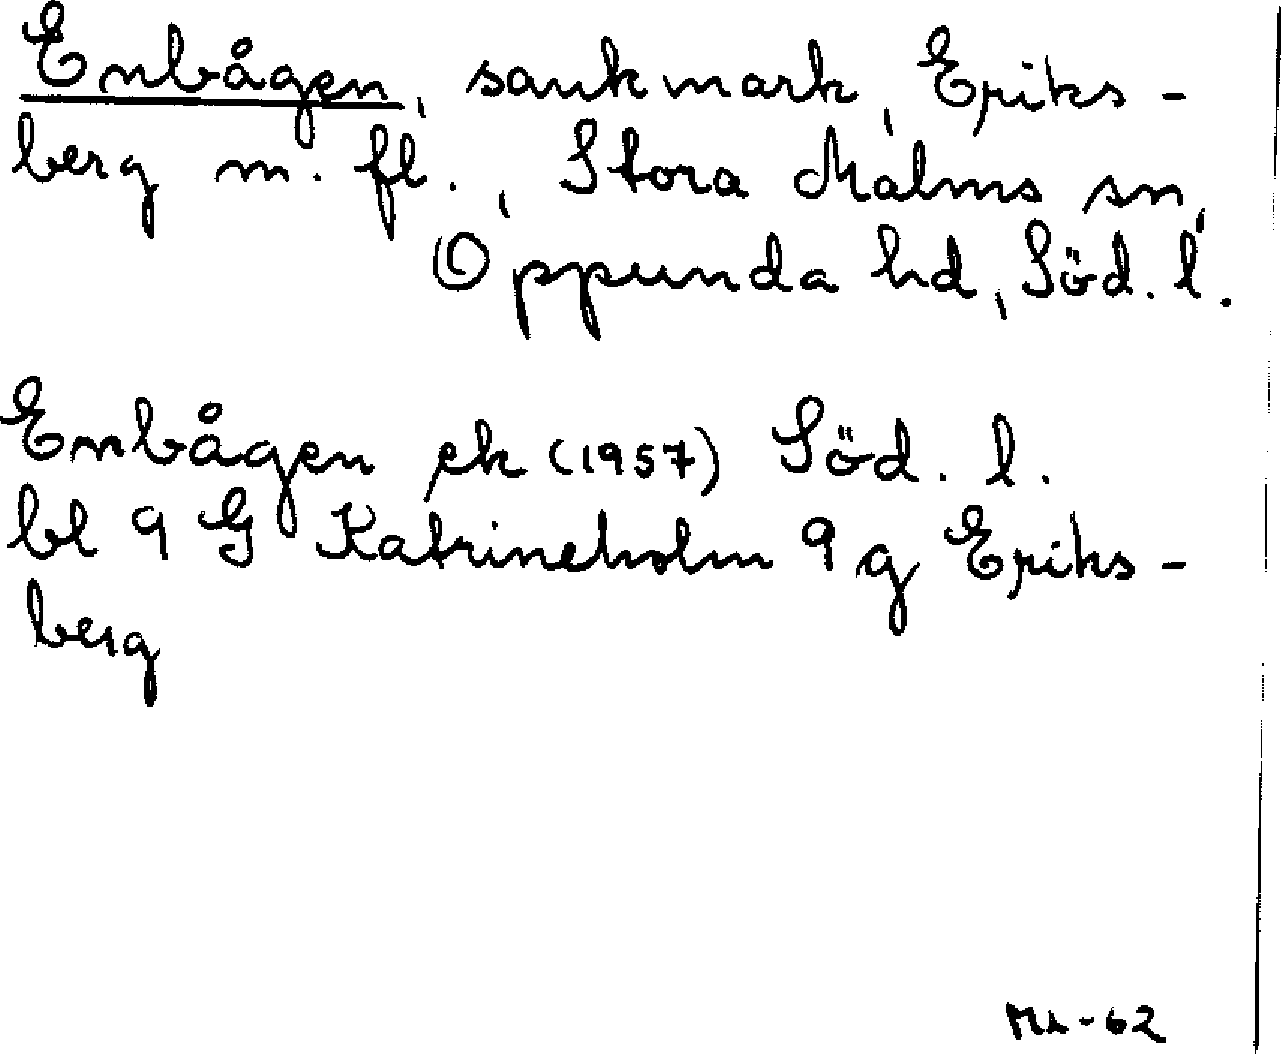 Enbågen, sankmark, Eriks-
berg m. fl., Stora Malms sn,
Oppunda hd, Söd. l.
Enbågen ek (1957) Söd. l.
bl 9 G Katrineholm 9 g Eriks-
berg
-62